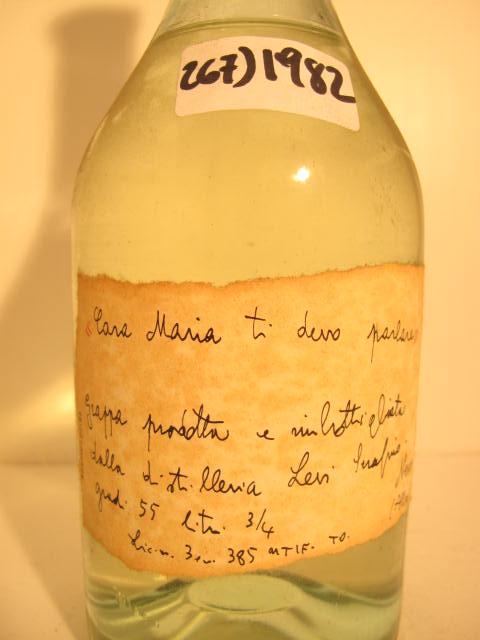 267) 1982
"Cara Maria ti devo parlare"
Grappa prodotta e imbottigliata
dalla distilleria Levi Serafino
gradi 55 litri 3/4
Licin. 3 385 MTIF. TO.